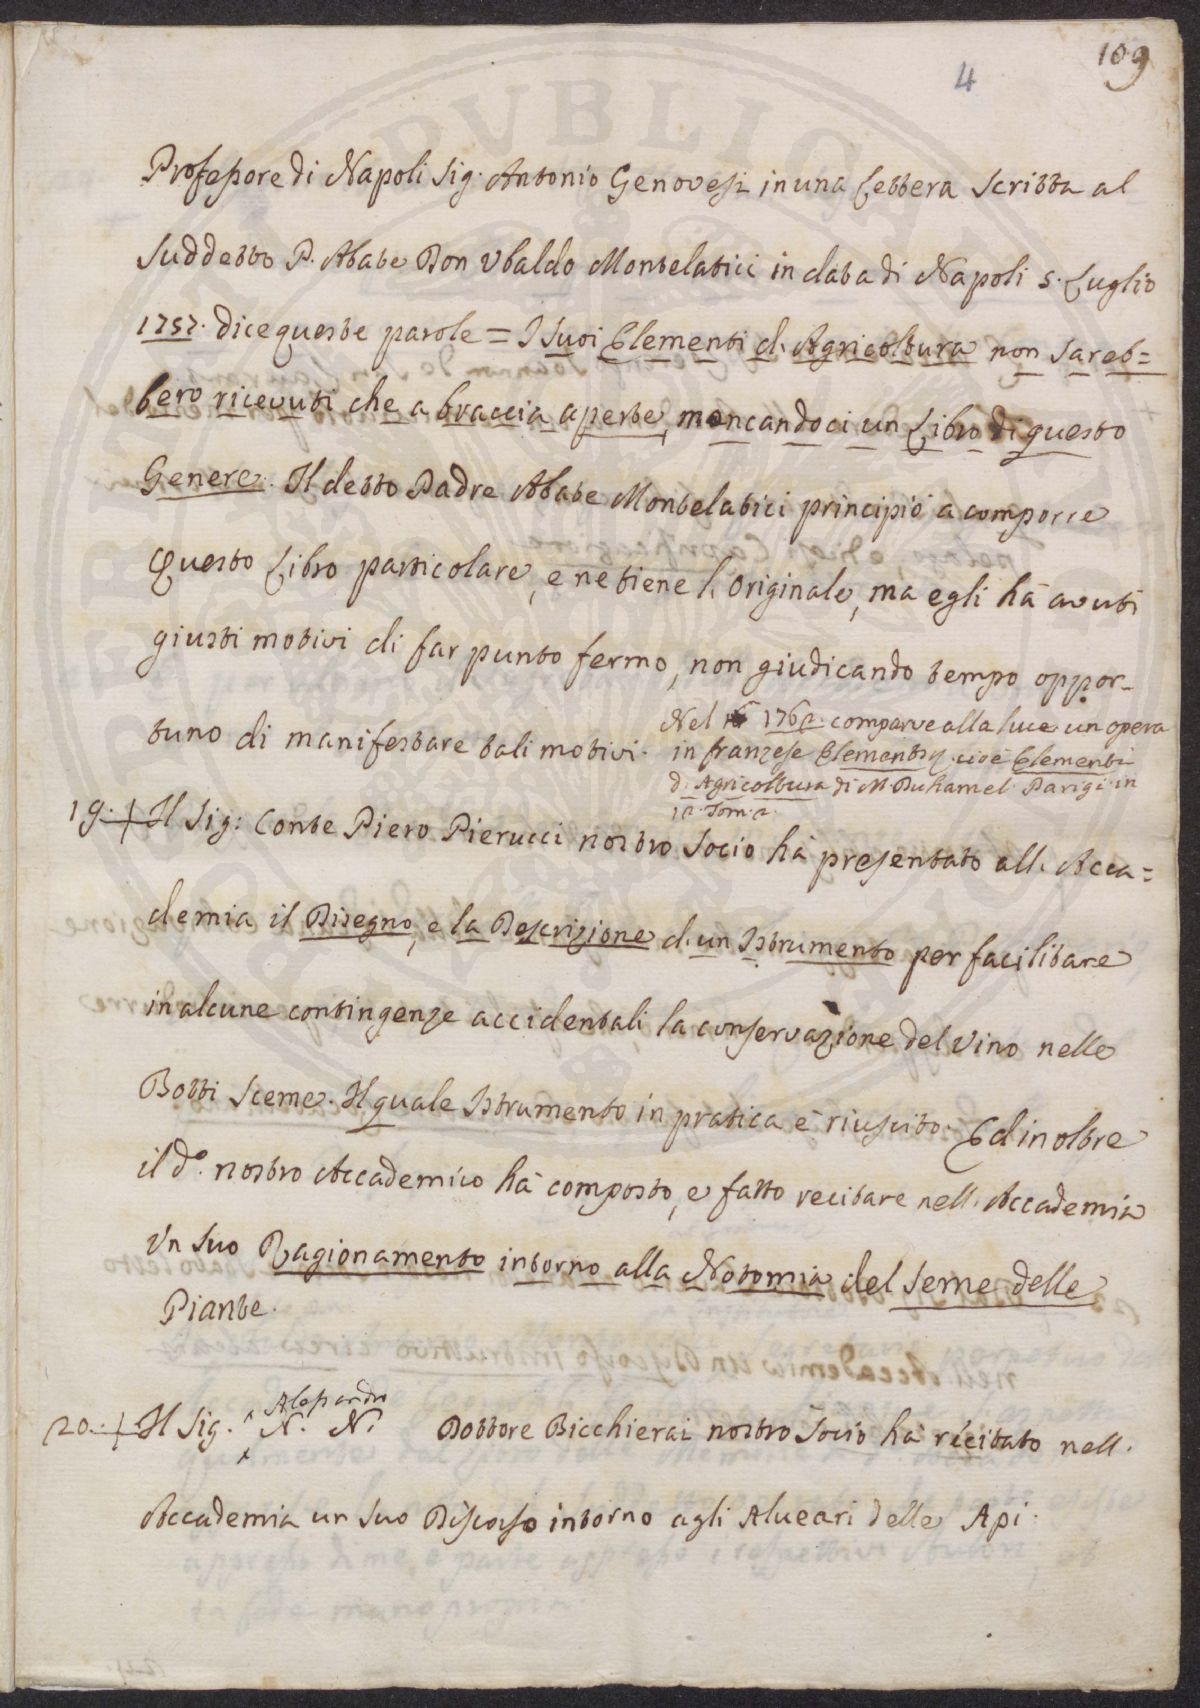 109
4
Professore di Napoli Sig. Antonio Genovesi in una Lettera scritta al
Suddetto P. Abate Don Ubaldo Montelatici in data di Napoli 5. Luglio
1757. dice queste parole = I suoi Elementi d'Agricoltura non sareb=
bero ricevuti che a braccia aperte, mancandoci un Libro di questo
Genere. Il detto Padre Abate Montelatici principiò a comporre
questo Libro particolare, e ne tiene l'Originale, ma egli hà avuti
giusti motivi di far punto fermo, non giudicando tempo oppor-
tuno di manifestare tali motivi.
Nel 1762. comparve alla luce un opera
in franzese Elements cioè Elementi
d'Agricoltura di M. Duhamel. Parigi in
12. Tom. 2.
19. + Il Sig: Conte Piero Pierucci nostro Socio hà presentato all'Acca=
demia il Disegno, e la Descrizione d'un Istrumento per facilitare
in alcune contingenze accidentali la conservazione del Vino nelle
Botti Sceme. Il quale Istrumento in pratica è riuscito. Ed inoltre
il do. nostro Accademico hà composto, e fatto recitare nell'Accademia
Un suo Ragionamento intorno alla Notomia del Seme delle
Piante.
20. + Il Sig. N. N. Dottore Bicchierai nostro Socio hà recitato nell'
Alessandro
Accademia un suo Discorso intorno agli Alveari delle Api.